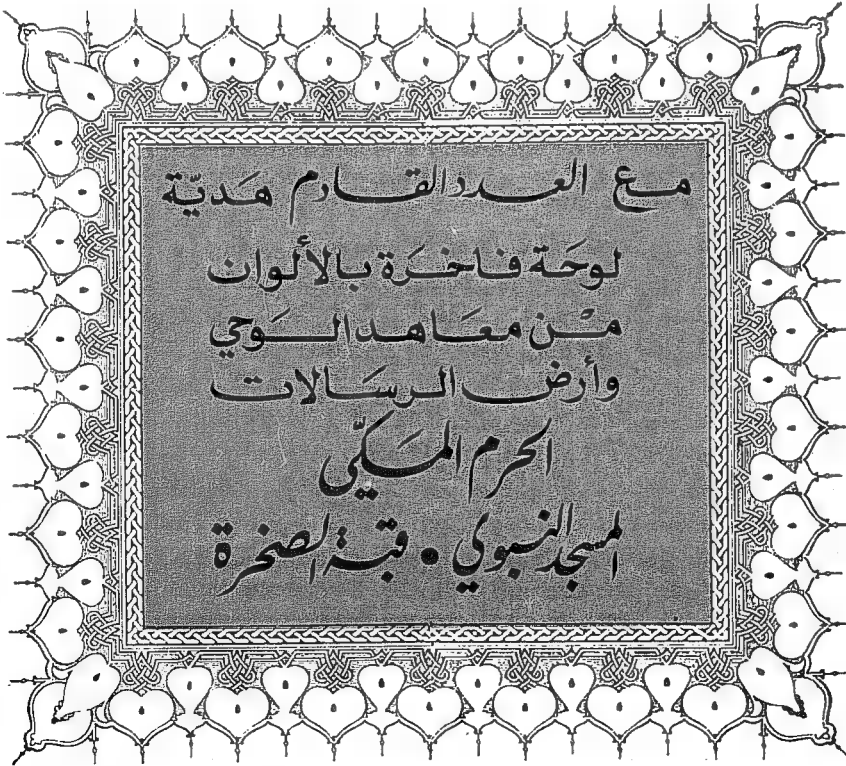 مع العدد القادم هَديّة
لوحَة فاخرَة بالألوان
مْن معَاهد الوَحي
وأرض الرسَالات
الحرم المَكيّ
المسجد النبوي • قبة الصخرة